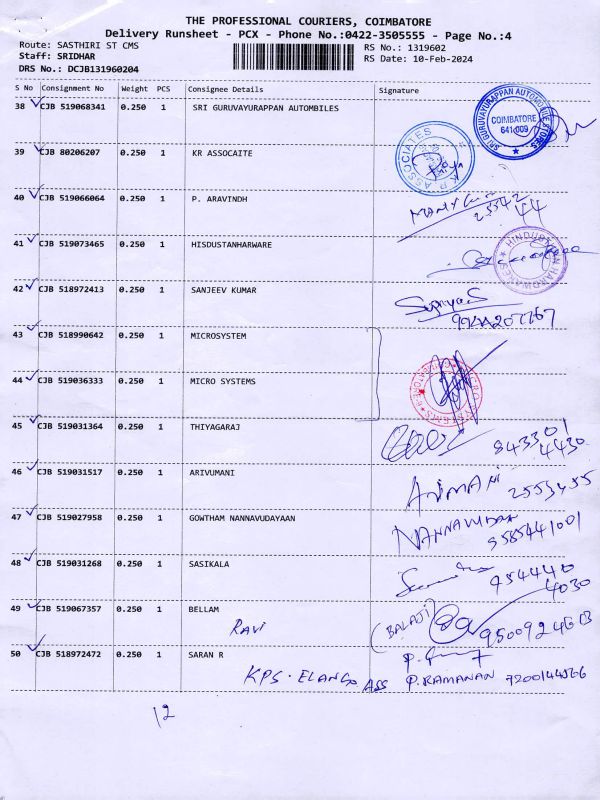 THE PROFESSIONAL COURIERS, COIMBATORE
Delivery Runsheet - PCX - Phone No.:0422-3505555 - Page No.:4
Route: SASTHIRI ST CMS RS No.: 1319602
Staff: SRIDHAR RS Date: 10-Feb-2024
DRS No.: DCJB131960204
S No Consignment No Weight PCS Consignee Details Signature
38 CJB 519068341 0.250 1 SRI GURUVAYURAPPAN AUTOMBILES
SRI GURUVAYURAPPAN AUTOMOBILE STORES
COIMBATORE
641 009
39 CJB 80206207 0.250 1 KR ASSOCAITE
ASSOCIATES
40 CJB 519066064 0.250 1 P. ARAVINDH
44
41 CJB 519073465 0.250 1 HISDUSTANHARWARE
HINDUSTAN HARDWARES
42 CJB 518972413 0.250 1 SANJEEV KUMAR
43 CJB 518990642 0.250 1 MICROSYSTEM
44 CJB 519036333 0.250 1 MICRO SYSTEMS
45 CJB 519031364 0.250 1 THIYAGARAJ
843301
4430
46 CJB 519031517 0.250 1 ARIVUMANI
47 CJB 519027958 0.250 1 GOWTHAM NANNAVUDAYAAN
9585441001
48 CJB 519031268 0.250 1 SASIKALA
954440
4030
49 CJB 519067357 0.250 1 BELLAM
RAVI (BALAJI)
50 CJB 518972472 0.250 1 SARAN R
KPS. ELANGO ASS P. RAMANAN
12